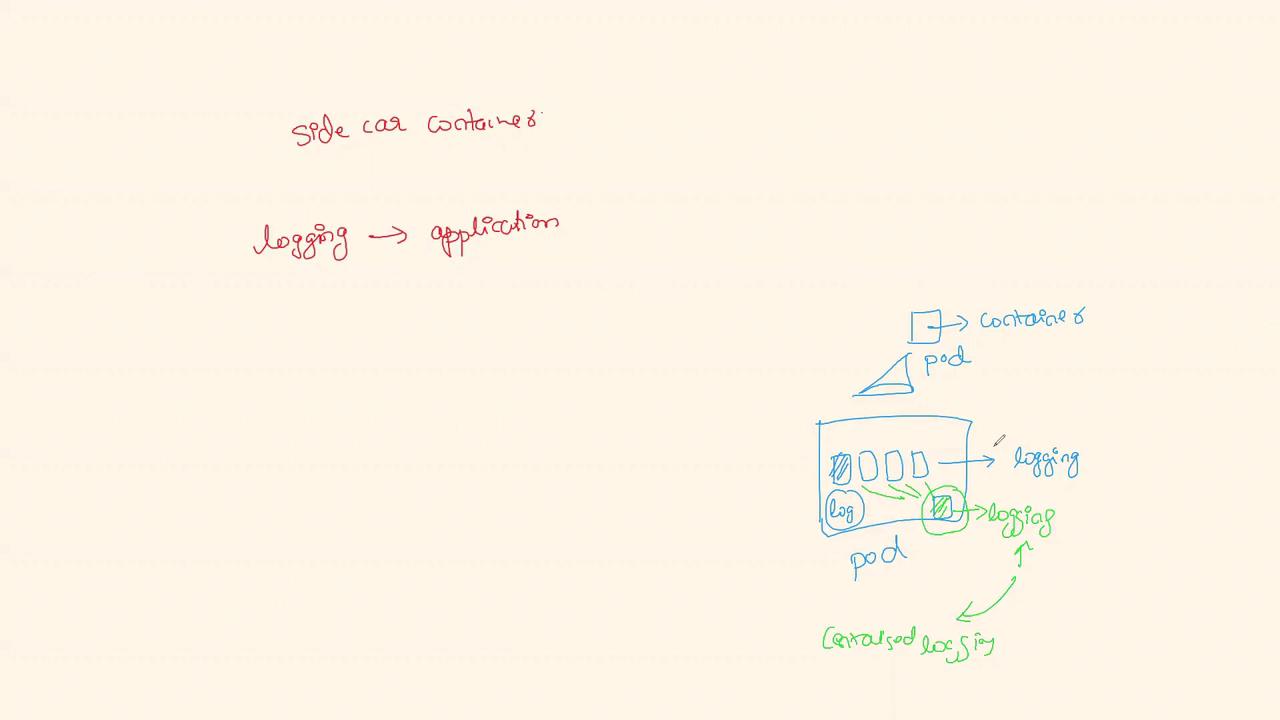 side car container
logging → application
container
pod
logging
log
logging
pod
Centralised logging